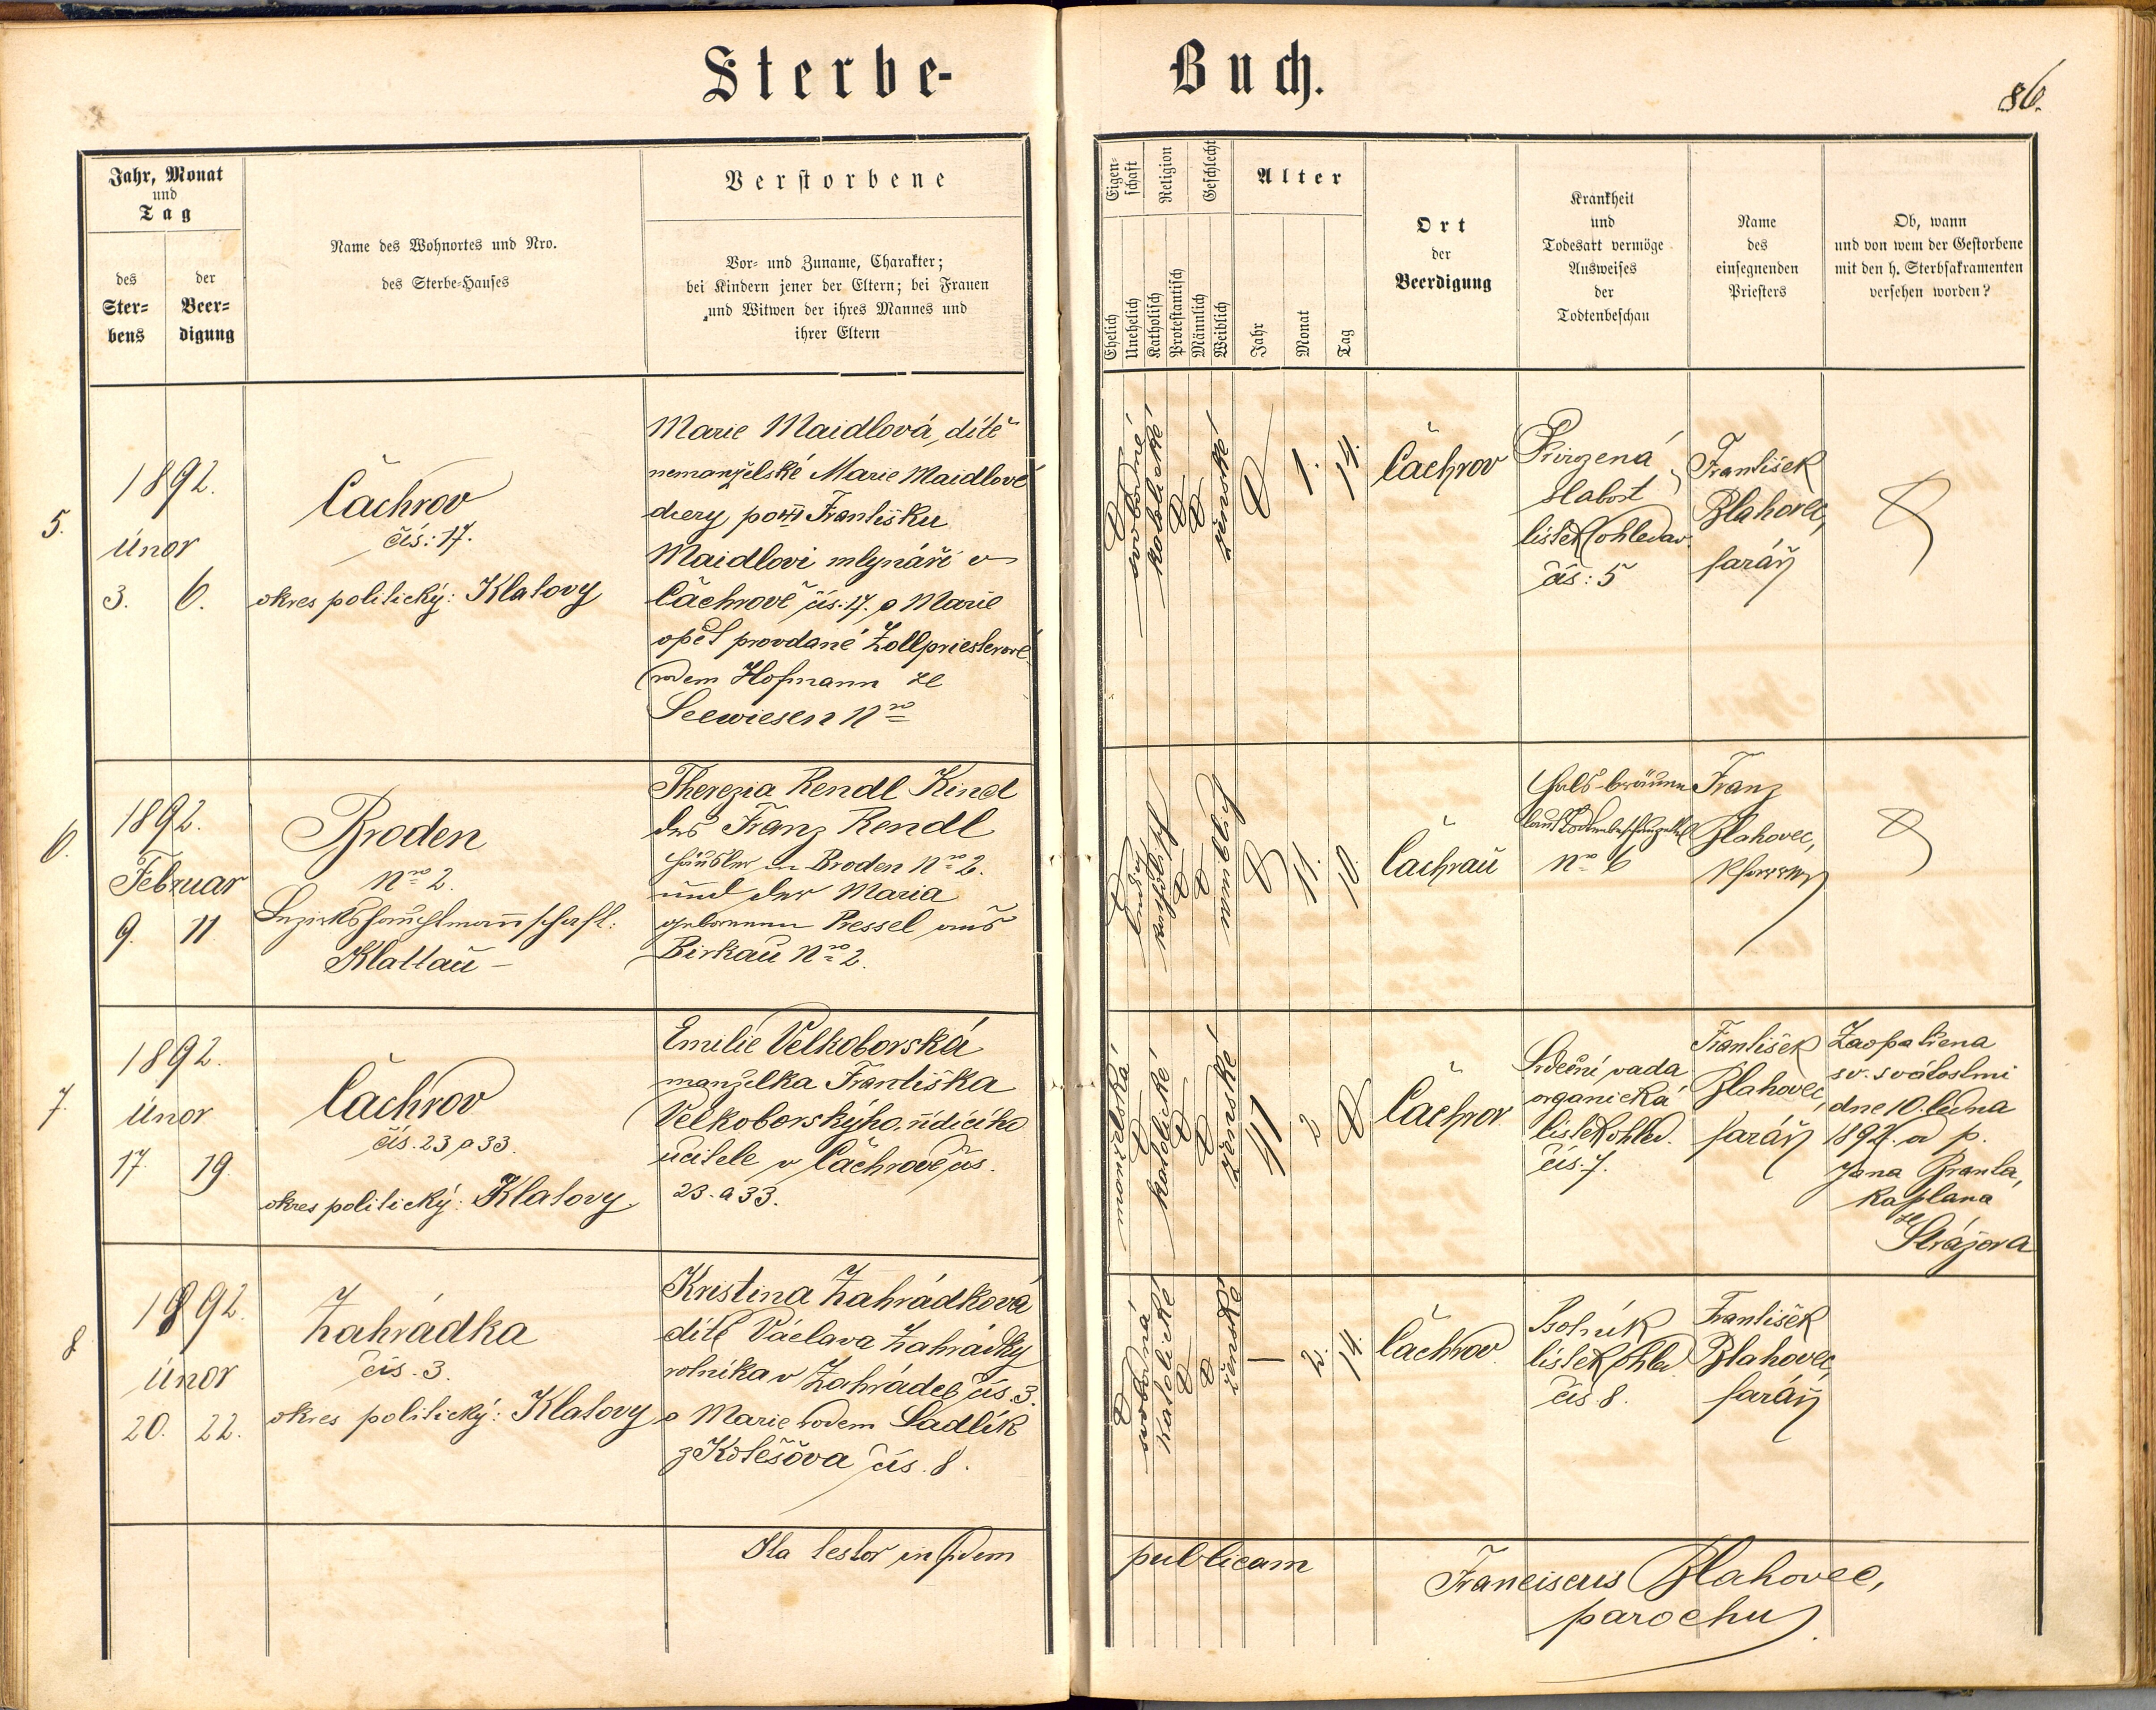 Sterbe-
Buch.
86.
Jahr, Monat
und
Tag
des
Ster-
bens
der
Beer-
digung
Name des Wohnortes und Nro.
des Sterbe-Hauses
Verstorbene
Vor- und Zuname, Charakter;
bei Kindern jener der Eltern; bei Frauen
und Witwen der ihres Mannes und
ihrer Eltern
Eigen-
schaft
Ehelich
Unehelich
Religion
Katholisch
Protestantisch
Geschlecht
Männlich
Weiblich
Alter
Jahr
Monat
Tag
Ort
der
Beerdigung
Krankheit
und
Todesart vermöge
Ausweises
der
Todtenbeschau
Name
des
einsegnenden
Priesters
Ob, wann
und von wem der Gestorbene
mit den h. Sterbsakramenten
versehen worden?
5.
1892.
únor
3. 6.
Čachrov
čís: 17.
okres politický: Klatovy
Marie Maidlová, dítě
nemanželské Marie Maidlové
dcery po Františku
Maidlovi mlynáři v
Čachrově čís. 17. a Marie
opět provdané Zollpriesterové
rodem Hofmann ze
Seewiesen Nro
svobodné
katolické
ženské
1. 14.
Čachrov
Přirozená
slabost
lístek ohledav.
čís: 5
František
Blahovec,
farář
6.
1892.
Februar
9. 11
Broden
Nro 2.
Bezirkshauptmannschaft:
Klattau
Therezia Rendl Kind
des Franz Rendl
Häusler in Broden Nro 2.
und der Maria
geborenen Pressel aus
Birkau Nro 2.
ledig
katholisch
weiblich
11. 10.
Čachrau
Hals-bräune
laut Todtenbeschauzettel
No 6
Franz
Blahovec,
Pfarrer
7.
1892.
únor
17. 19.
Čachrov
čís. 23 a 33.
okres politický: Klatovy
Emilie Velkoborská
manželka Františka
Velkoborského, řídícího
učitele v Čachrově čís.
23. a 33.
manželská
katolické
ženské
41 2
Čachrov
Srdeční vada
organická
lístek ohled.
čís. 7.
František
Blahovec,
farář
Zaopatřena
sv. svátostmi
dne 10. ledna
1892. od p.
Jana Branta,
kaplana
ze
Strážova
8
1892.
únor
20. 22.
Zahrádka
čís. 3.
okres politický: Klatovy
Kristina Zahrádková
dítě Václava Zahrádky
rolníka v Zahrádce čís. 3.
a Marie rodem Sadlík
z Kolešova čís. 8.
svobodná
katolické
ženské
— 2. 14.
Čachrov
Psotník
lístek ohled.
čís 8.
František
Blahovec,
farář
Ita testor in fidem
publicam
Franciscus Blahovec,
parochus